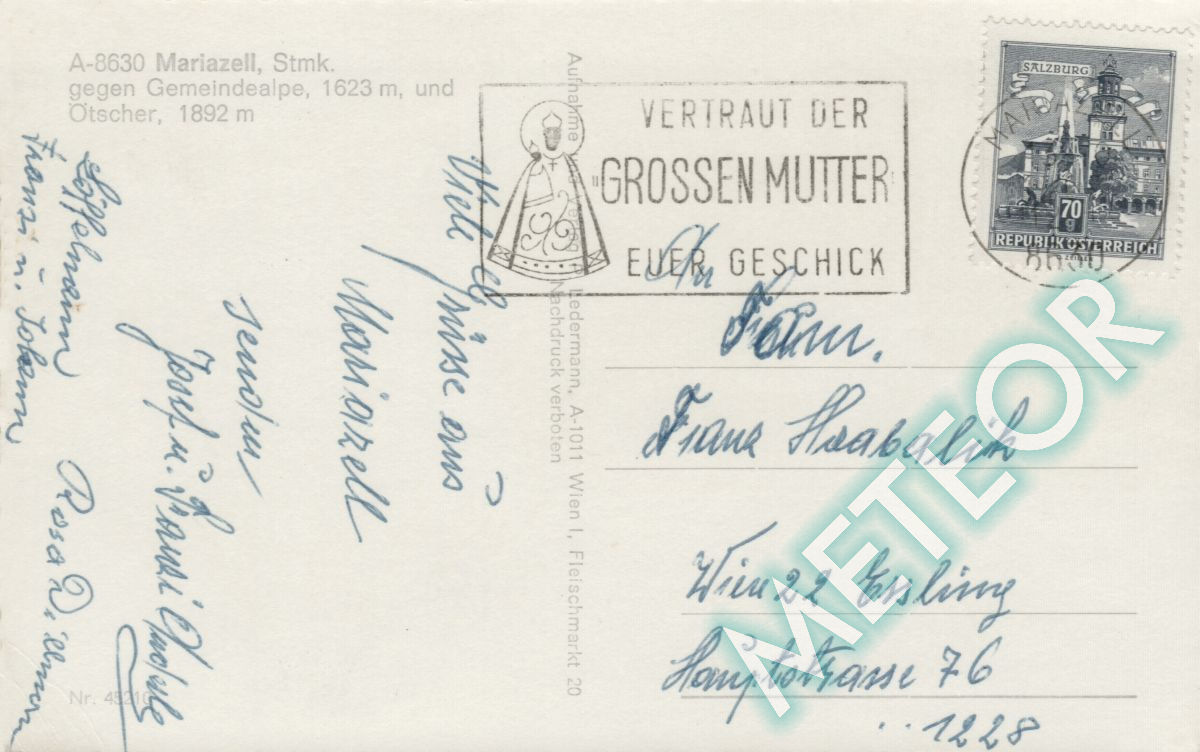 A-8630 Mariazell, Stmk.
gegen Gemeindealpe, 1623 m, und
Ötscher, 1892 m
Viele Grüsse aus
Mariazell
senden
Josef u.
Löffelmann
Franzi u. Johann
Rosa
Nr.
Aufnahme
Ledermann, A-1011 Wien I, Fleischmarkt 20
Nachdruck verboten
VERTRAUT DER
"GROSSEN MUTTER
EUER GESCHICK
SALZBURG
70
g
REPUBLIK ÖSTERREICH
8630
An
Fam.
Franz
Wien 22 Essling
Hauptstrasse 76
1228
METEOR